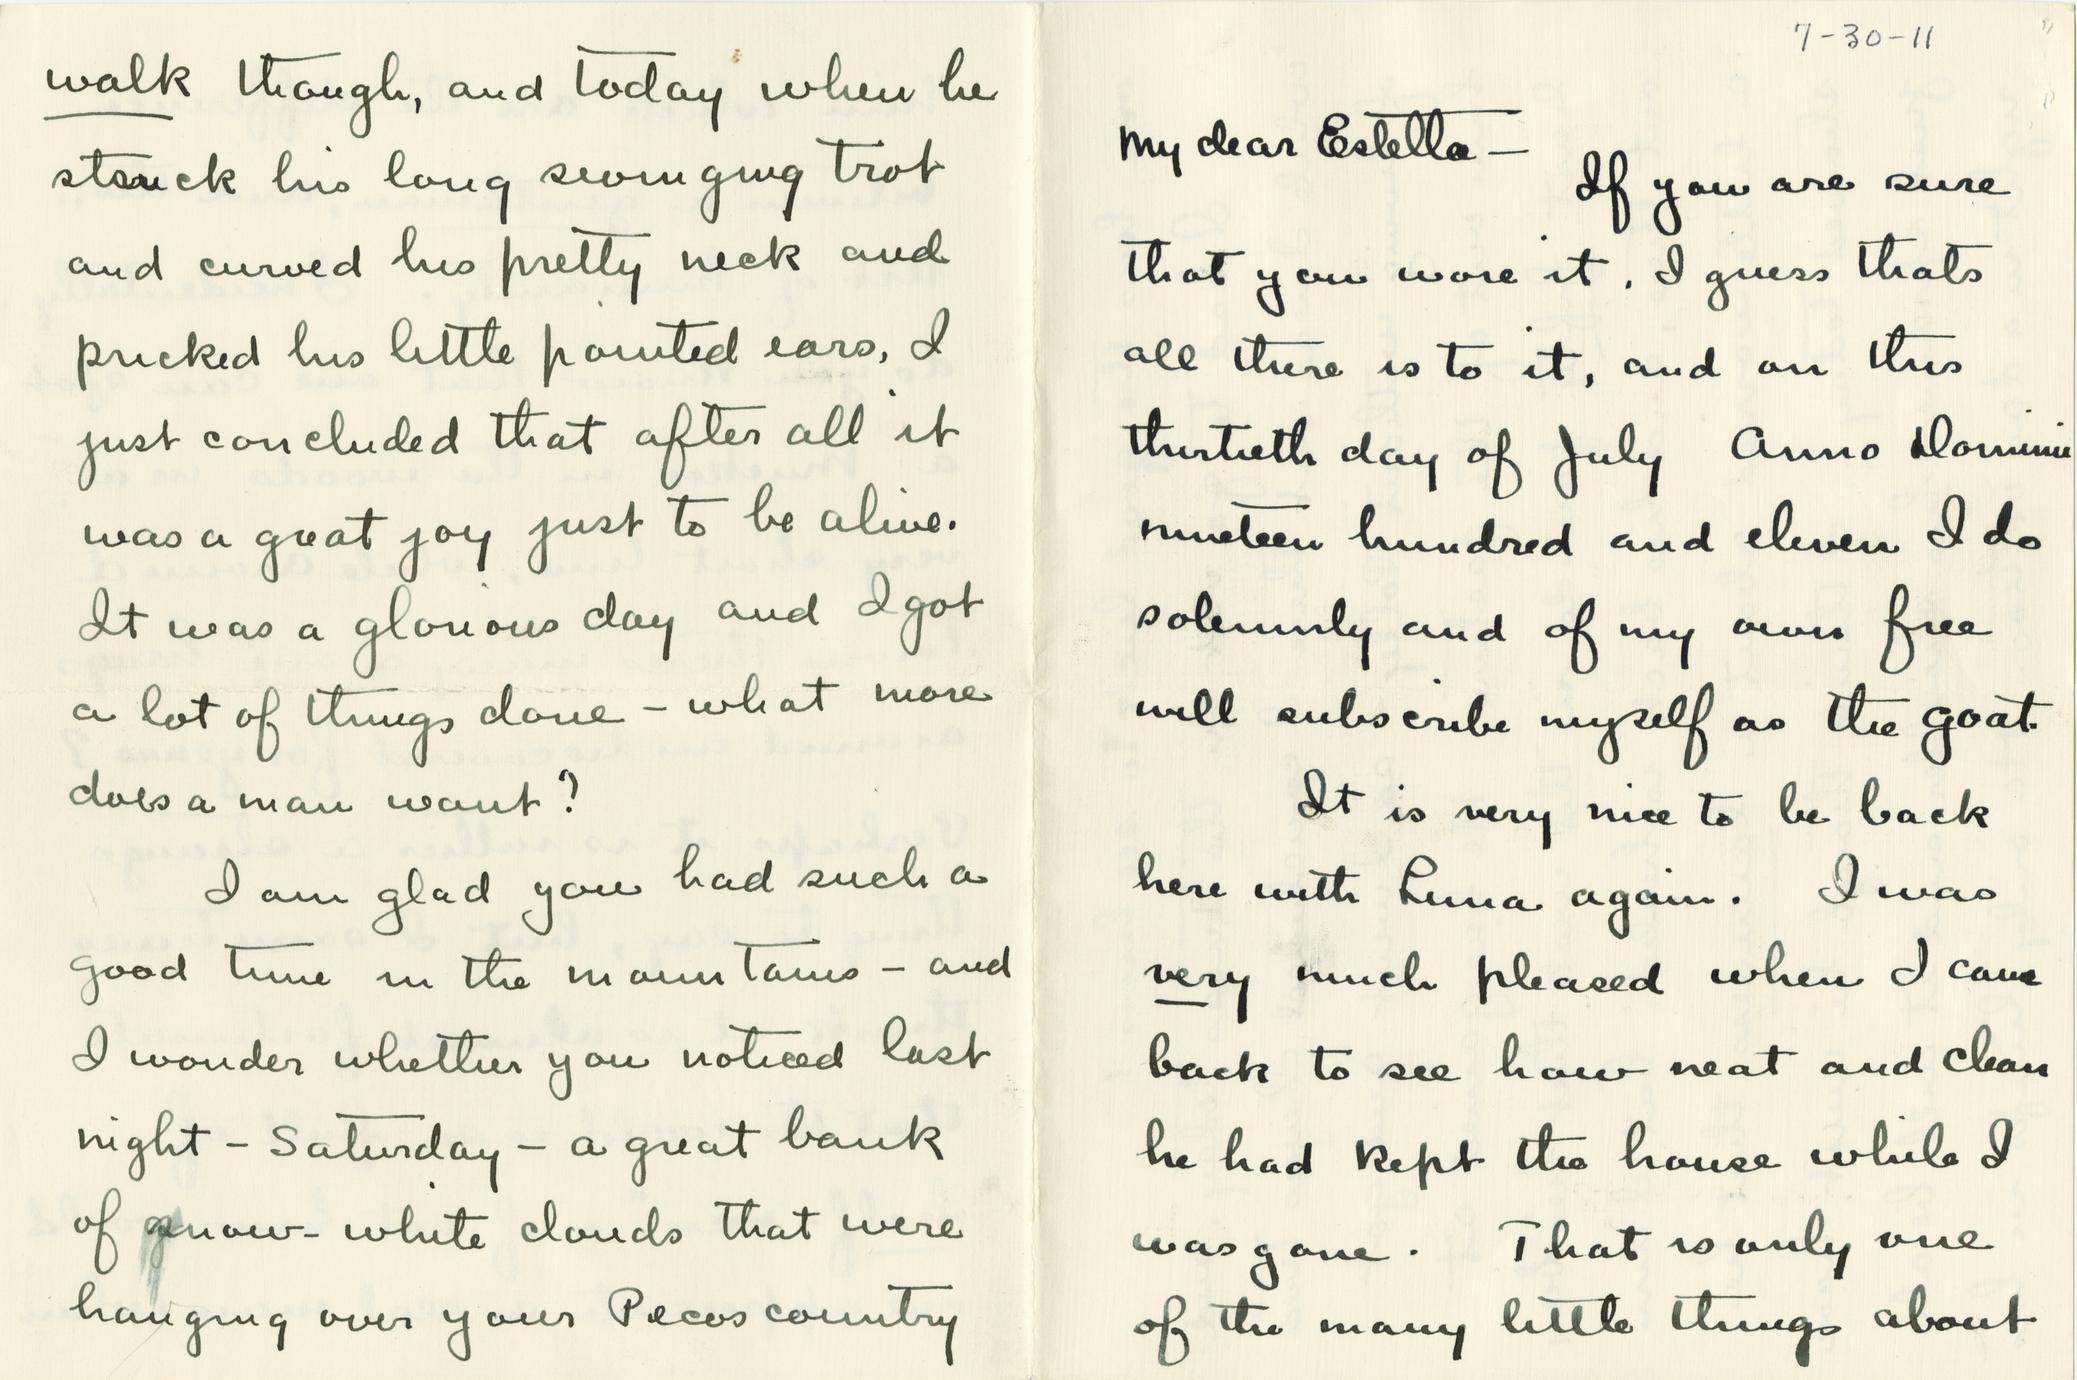 walk though, and today when he
struck his long swinging trot
and curved his pretty neck and
pricked his little pointed ears, I
just concluded that after all it
was a great joy just to be alive.
It was a glorious day and I got
a lot of things done – what more
does a man want?
I am glad you had such a
good time in the mountains – and
I wonder whether you noticed last
night – Saturday – a great bank
of snow-white clouds that were
hanging over your Pecos country
7-30-11
My dear Estella –
If you are sure
that you wore it, I guess thats
all there is to it, and on this
thirtieth day of July Anno Domini
nineteen hundred and eleven I do
solemnly and of my own free
will subscribe myself as the goat.
It is very nice to be back
here with Luna again. I was
very much pleased when I came
back to see how neat and clean
he had kept the house while I
was gone. That is only one
of the many little things about